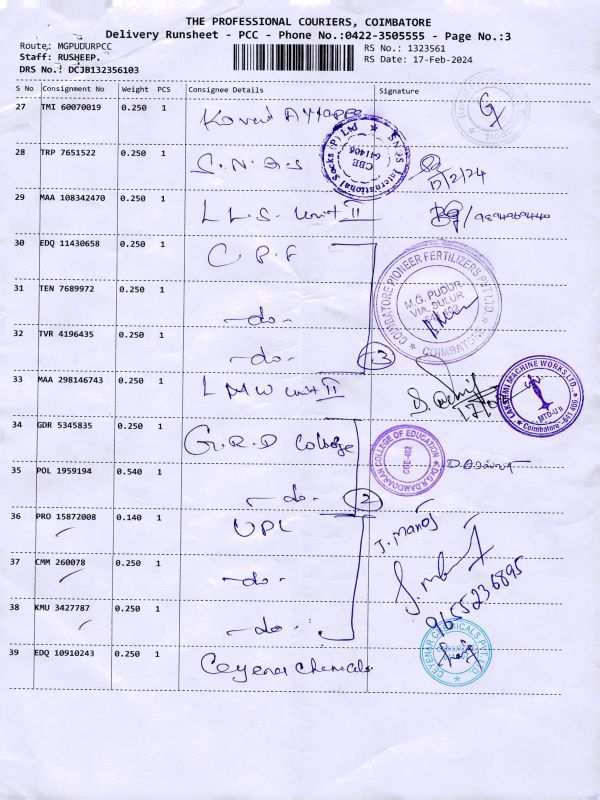 THE PROFESSIONAL COURIERS, COIMBATORE
Delivery Runsheet - PCC - Phone No.:0422-3505555 - Page No.:3
Route: MGPUDURPCC
RS No.: 1323561
Staff: RUSHEEP.
RS Date: 17-Feb-2024
DRS No.: DCJB132356103
S No Consignment No Weight PCS Consignee Details Signature
27 TMI 60070019 0.250 1
28 TRP 7651522 0.250 1 S.N.Q.S
S.N.Q.S International Socks (P) Ltd ★
CBE
641406
17/2/24
29 MAA 108342470 0.250 1 L L.S. Unit II
30 EDQ 11430658 0.250 1 C.P.F
COIMBATORE PIONEER FERTILIZERS PVT LTD. ★ COIMBATORE ★
M.G. PUDUR
VIA. SULUR
31 TEN 7689972 0.250 1 -do-
32 TVR 4196435 0.250 1 -do- 3
33 MAA 298146743 0.250 1 L M W Unit II
LAKSHMI MACHINE WORKS LTD.
MTD-U II
★ Coimbatore -641 406 ★
34 GDR 5345835 0.250 1 G.R.D College
COLLEGE OF EDUCATION ★ D.G.R.DAMODARAN
CBE-402
35 POL 1959194 0.540 1 -do- 2
36 PRO 15872008 0.140 1 UPL J. Manoj
37 CMM 260078 0.250 1 -do-
38 KMU 3427787 0.250 1 -do- 9655236895
39 EDQ 10910243 0.250 1 Ceyenar Chemicals
CEYENAR CHEMICALS PVT. LTD ★